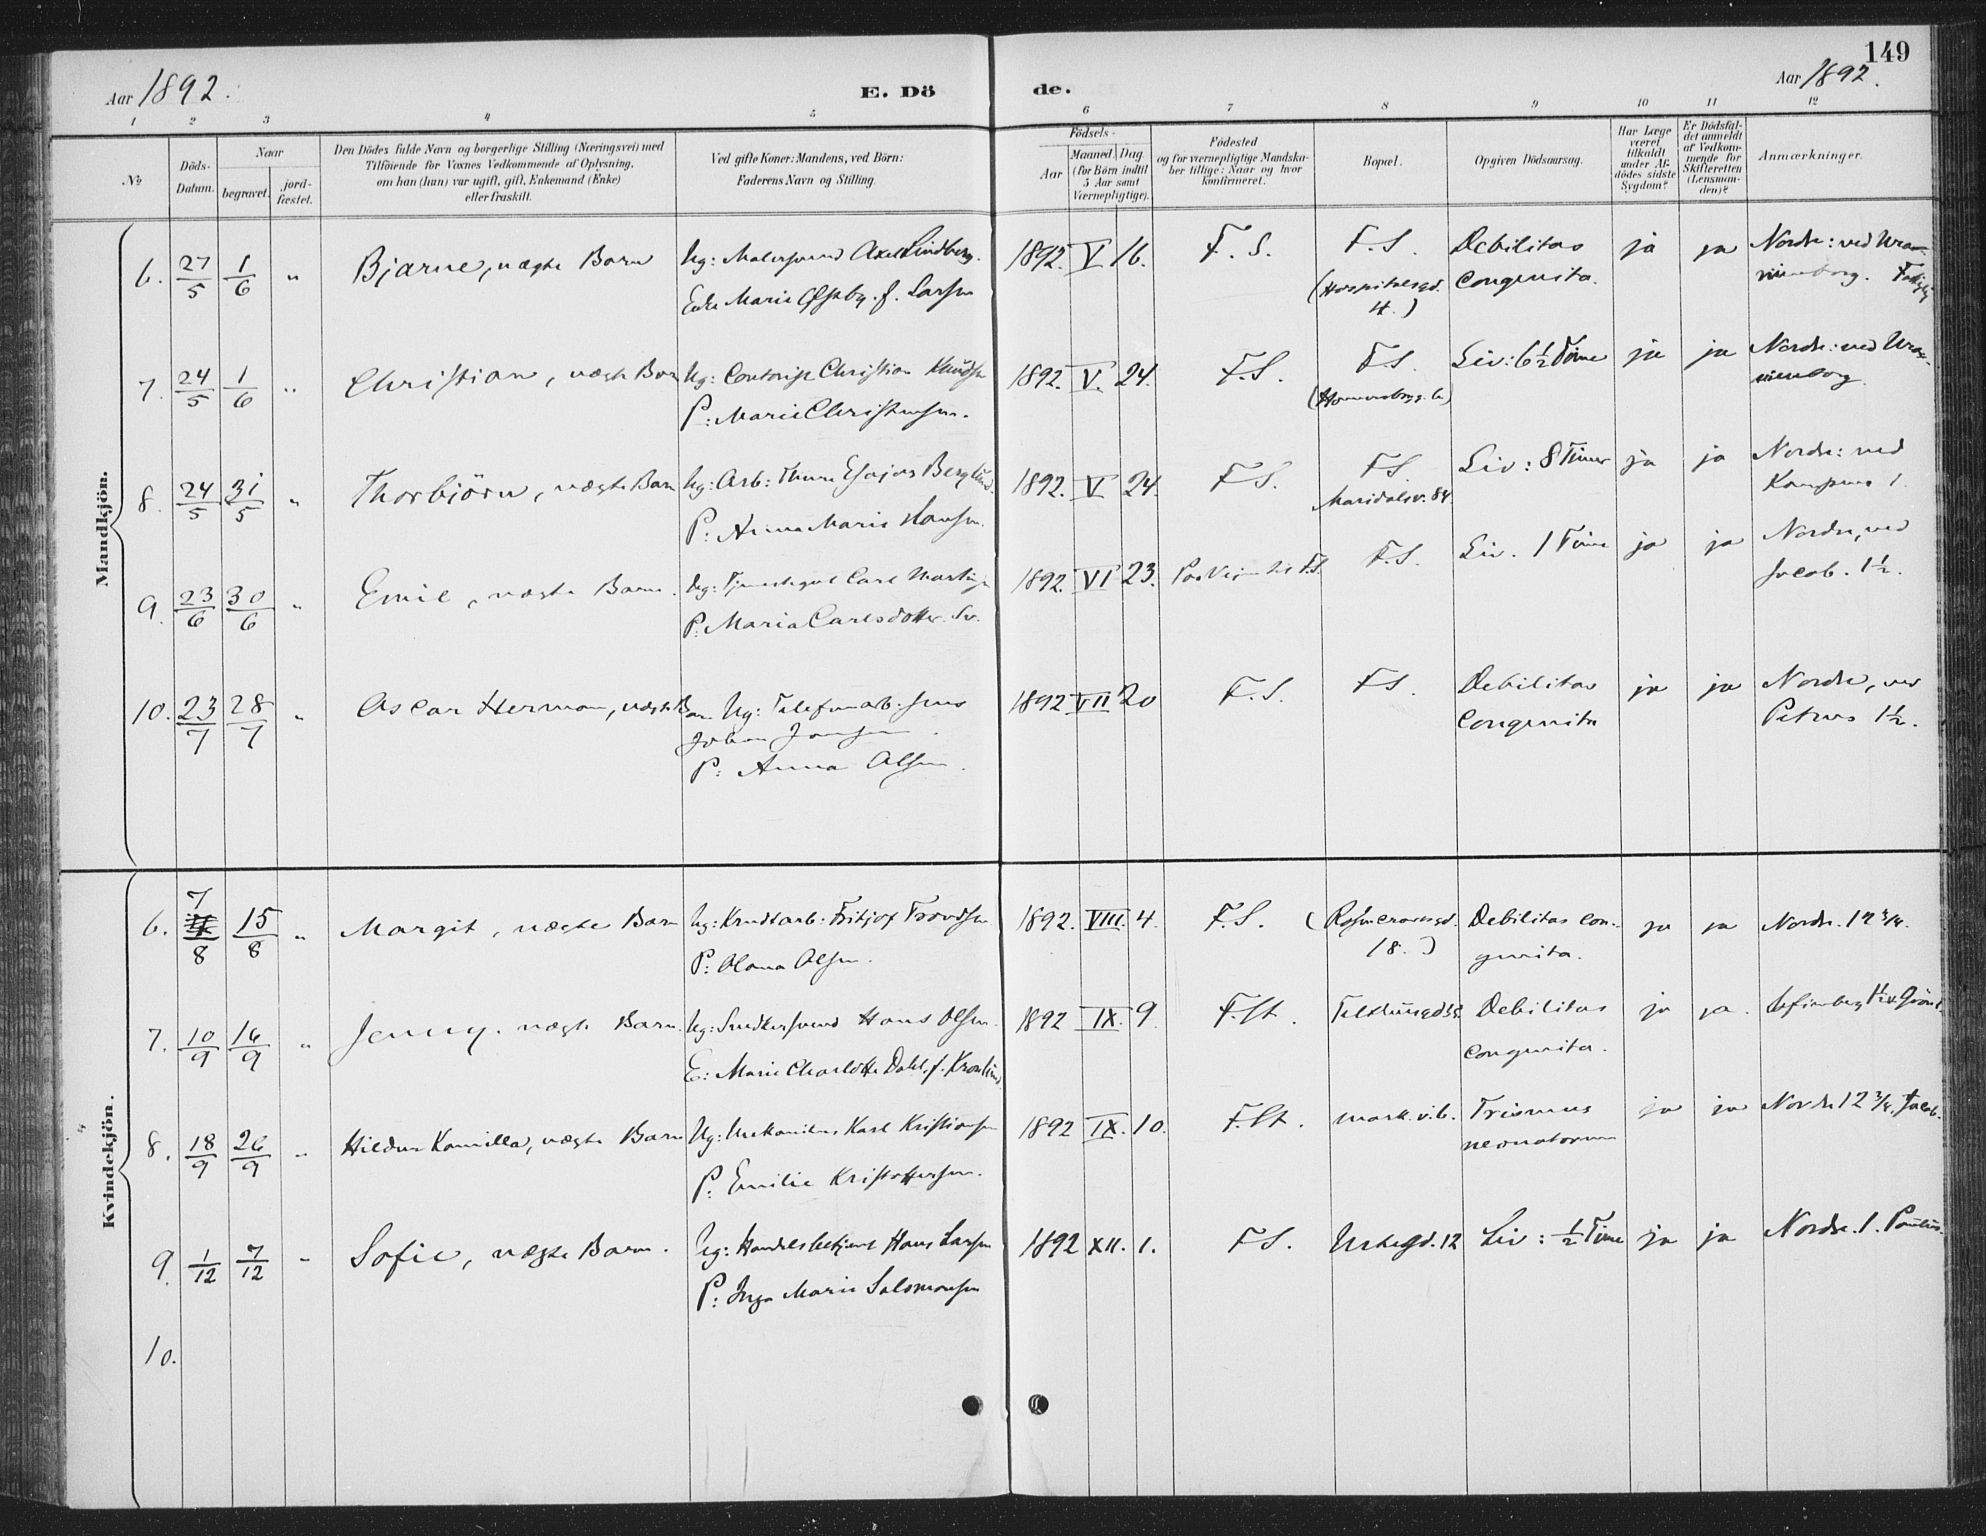 149
Aar 1892.
E. Dö
de.
Aar 1892.
1 2 3 4 5 6 7 8 9 10 11 12
№
Döds-
Datum.
Naar
begravet.
jord-
fæstet.
Den Dödes fulde Navn og borgerlige Stilling (Næringsvei) med
Tilföiende for Voxnes Vedkommende af Oplysning,
om han (hun) var ugift, gift, Enkemand (Enke)
eller fraskilt.
Ved gifte Koner: Mandens, ved Börn:
Faderens Navn og Stilling.
Födsels-
Aar
Maaned. Dag.
(for Börn indtil
5 Aar samt
Værnepligtige).
Födested
og for værnepligtige Mandska-
ber tillige: Naar og hvor
konfirmeret.
Bopæl.
Opgiven Dödsaarsag.
Har Læge
været
tilkaldt
under Af-
dödes sidste
Sygdom?
Er Dödsfal-
det anmeldt
af Vedkom-
mende for
Skifteretten
(Lensman-
den)?
Anmærkninger.
Mandkjön.
6. 27/5 1/6 " Bjarne, uægte Barn Ug: Malersvend Axel Lindberg. 1892. V 16. F. S. F. S. Debilitas ja ja Nordr: ved Ura-
Enke Marie f. Larsen (Hospitalsgd. congenita. nienborg.
4.)
7. 24/5 1/6 " Christian, uægte Barn Ug: Contorist Christian Knudsen 1892. V. 24. F.S. F.S. Liv: 6½ Time ja ja Nordr: ved Ura-
P: Marie Christensen. nienborg.
8. 24/5 31/5 " Thorbjörn, uægte Barn Ug: Arb: Thure Esajas Berglund. 1892. V 24. F.S. F.S. Liv: 8 Timer ja ja Nordr: ved
P: Anna Marie Hansen. Maridalsv. 84 Kampens 1.
9. 23/6 30/6 " Emil, uægte Barn. Ug: Carl 1892. VI 23. F.S. F.S. Liv. 1 Time ja ja Nordre, ved
P: Maria Carlsdotter. Sv. Jacob. 1½.
10. 23/7 28/7 " Oscar Herman, uægte Barn. Ug: Telefonarb. Jens 1892 VII 20 F.S. F.S. Debilitas ja ja Nordre, ved
Johan Jansen congenita Petrus 1½.
P: Anna Olsen.
Kvindekjön.
6. 7/8 15/8 " Margit, uægte Barn Ug: Krudtarb: Fritjof Trondsen 1892. VIII. 4. F.S. (Rosencransgd. Debilitas con- ja ja Nordr. 12¾.
P: Olava Olsen. 18.) genita.
7. 10/9 16/9 " Jenny. uægte Barn. Ug: Snedkersvend Hans Olsen. 1892 IX. 9. F.St. Debilitas ja ja.
E: Marie Charlotte Dahl, f. Kronlund congenita.
8. 18/9 26/9 " Hildur Kamilla, uægte Barn Ug: Mekaniker Karl Kristiansen 1892 IX. 10. F.St. mark. v. 6. Trismus ja ja Nordr. 12¾. Jacob.
P: Emilie Kristoffersen. neonatorum
9. 1/12 7/12 " Sofie, uægte Barn. Ug: Handelsbetjent Hans Larsen 1892 XII. 1. F.S. Urtegd. 12 Liv: ½ Time ja ja Nordre. 1. Paulus.
P: Inga Marie Salomonsen
10.